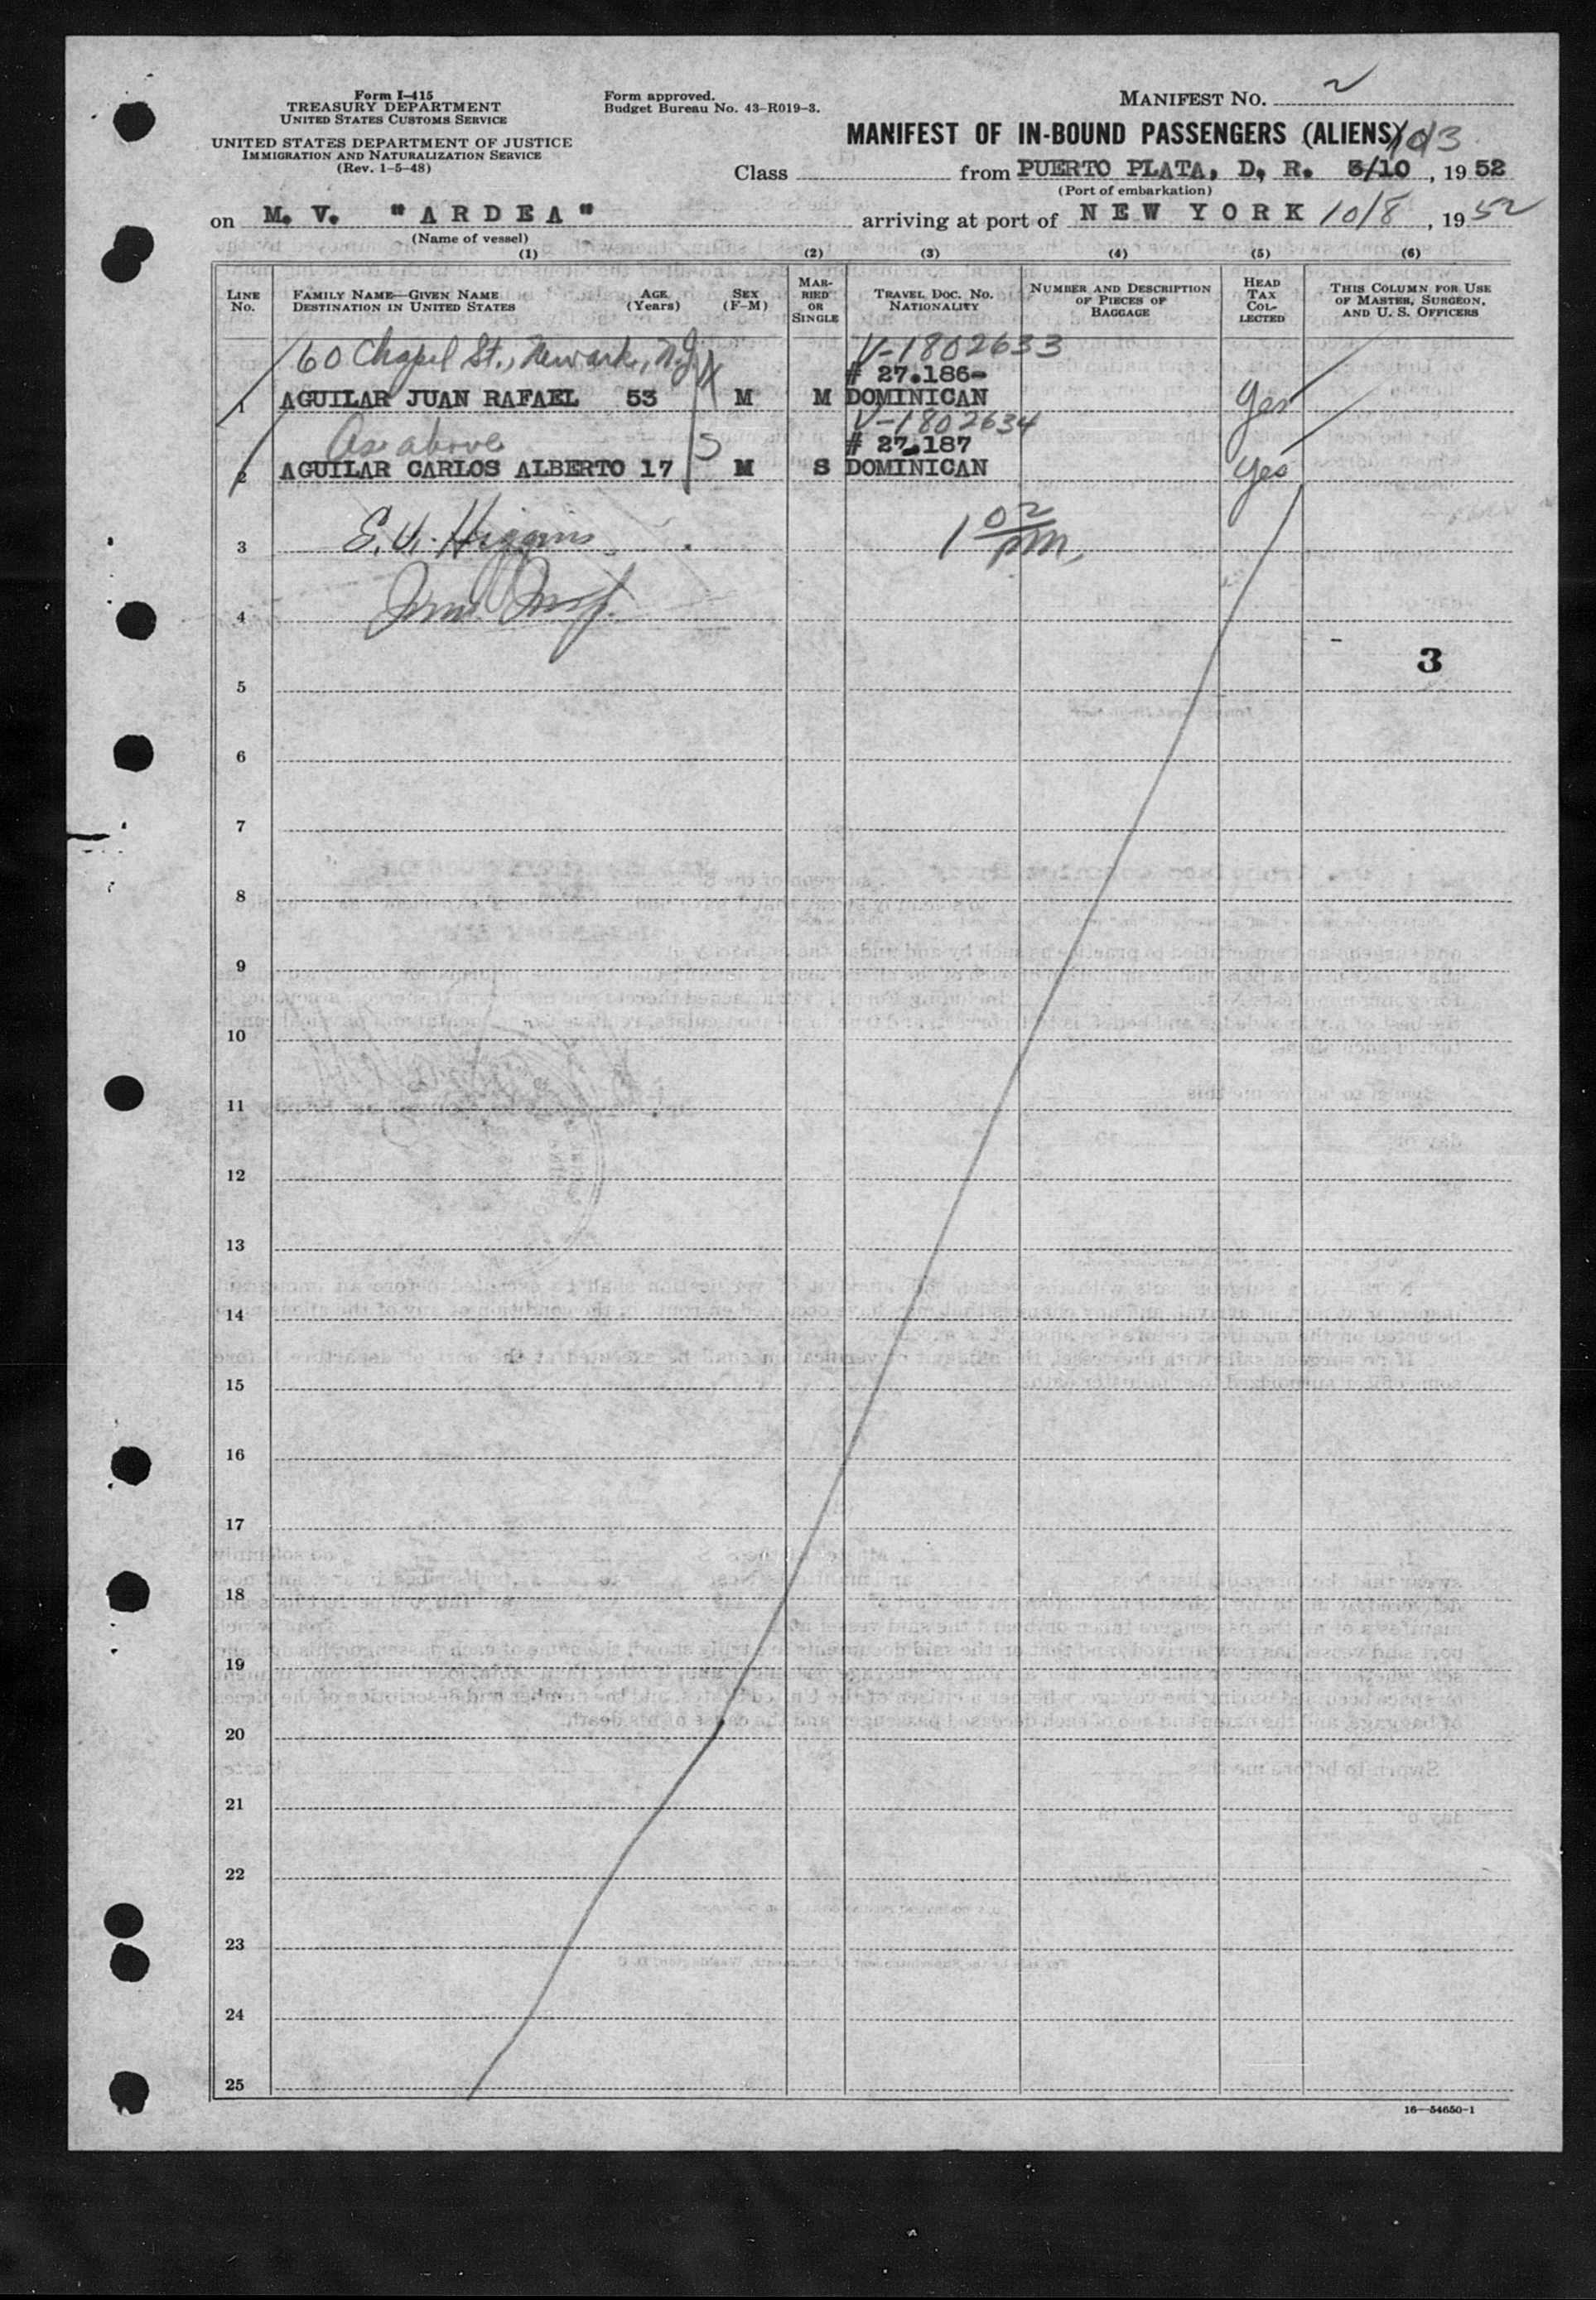 Form I-415
TREASURY DEPARTMENT
UNITED STATES CUSTOMS SERVICE
UNITED STATES DEPARTMENT OF JUSTICE
IMMIGRATION AND NATURALIZATION SERVICE
(Rev. 1-5-48)
Form approved.
Budget Bureau No. 43-R019-3.
MANIFEST NO. 2
MANIFEST OF IN-BOUND PASSENGERS (ALIENS)
Class from PUERTO PLATA, D. R. 3/10, 1952
(Port of embarkation)
on M. V. "ARDEA" arriving at port of NEW YORK 10/8, 1952
(Name of vessel)
(1) (2) (3) (4) (5) (6)
LINE No.
FAMILY NAME—GIVEN NAME
DESTINATION IN UNITED STATES
AGE (Years)
SEX (F-M)
MARRIED OR SINGLE
TRAVEL DOC. NO.
NATIONALITY
NUMBER AND DESCRIPTION OF PIECES OF BAGGAGE
HEAD TAX COLLECTED
THIS COLUMN FOR USE OF MASTER, SURGEON, AND U. S. OFFICERS
60 Chapel St., Newark, N.J. V-1802633
# 27.186-
1 AGUILAR JUAN RAFAEL 53 M M DOMINICAN Yes
As above S V-1802634
# 27.187
2 AGUILAR CARLOS ALBERTO 17 M S DOMINICAN Yes
3 E. V. Higgins 1 02 pm
4 Imm. Insp.
3
5
6
7
8
9
10
11
12
13
14
15
16
17
18
19
20
21
22
23
24
25
16—54650-1